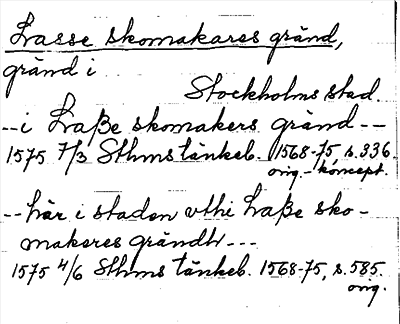 Lasse skomakares gränd,
gränd i
Stockholms stad.
--i Laße skomakers gränd--
1575 7/3 Sthms tänkeb. 1568-75, s.336.
orig.-koncept.
--här i staden vthi Laße sko-
makeres grändh---
1575 4/6 Sthms tänkeb. 1568-75, s.585.
orig.